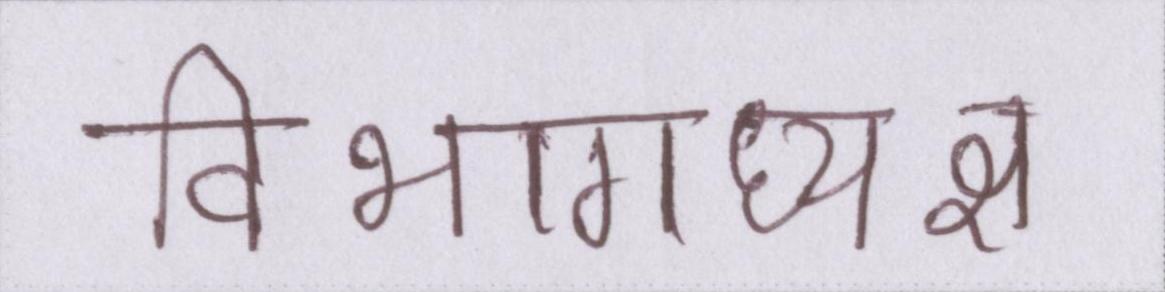 विभागध्यक्ष